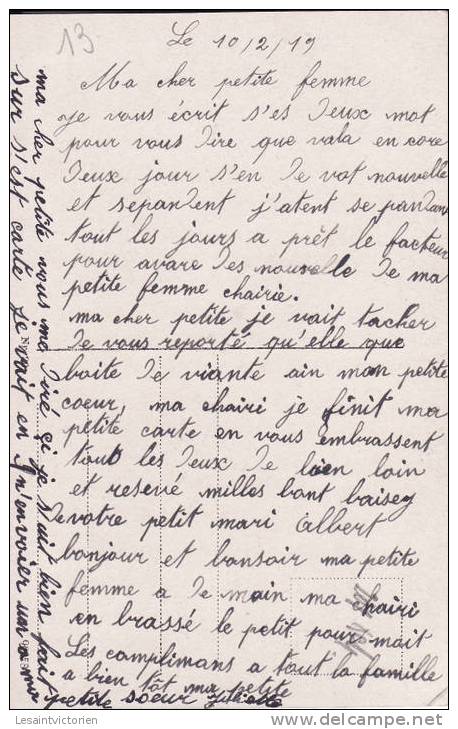 13
Le 10/2/19
Ma cher petite femme
je vous écrit s'es deux mot
pour vous dire que vala en core
deux jour s'en de vot nouvelle
et sepandent j'atent se pandans
tout les jours a prèt le facteur
pour avare des nouvelle de ma
petite femme chairie.
ma cher petite je vait tacher
de vous reporté qu'elle que
boite de viante ain mon petite
coeur, ma chairi je finit ma
petite carte en vous embrassent
tout les deux de bien loin
et reservé milles bont baisey
de votre petit mari Albert
bonjour et bonsoir ma petite
femme a de main ma chairi
en brassé le petit pour mait
Les complimans a tout la famille
a bien tôt ma petite
petite soeur
ma cher petite vous ma dire si je suit bien fait
sur s'est carte je vait en n'envoier un a ma
Lesaintvictorien
delcampe.net